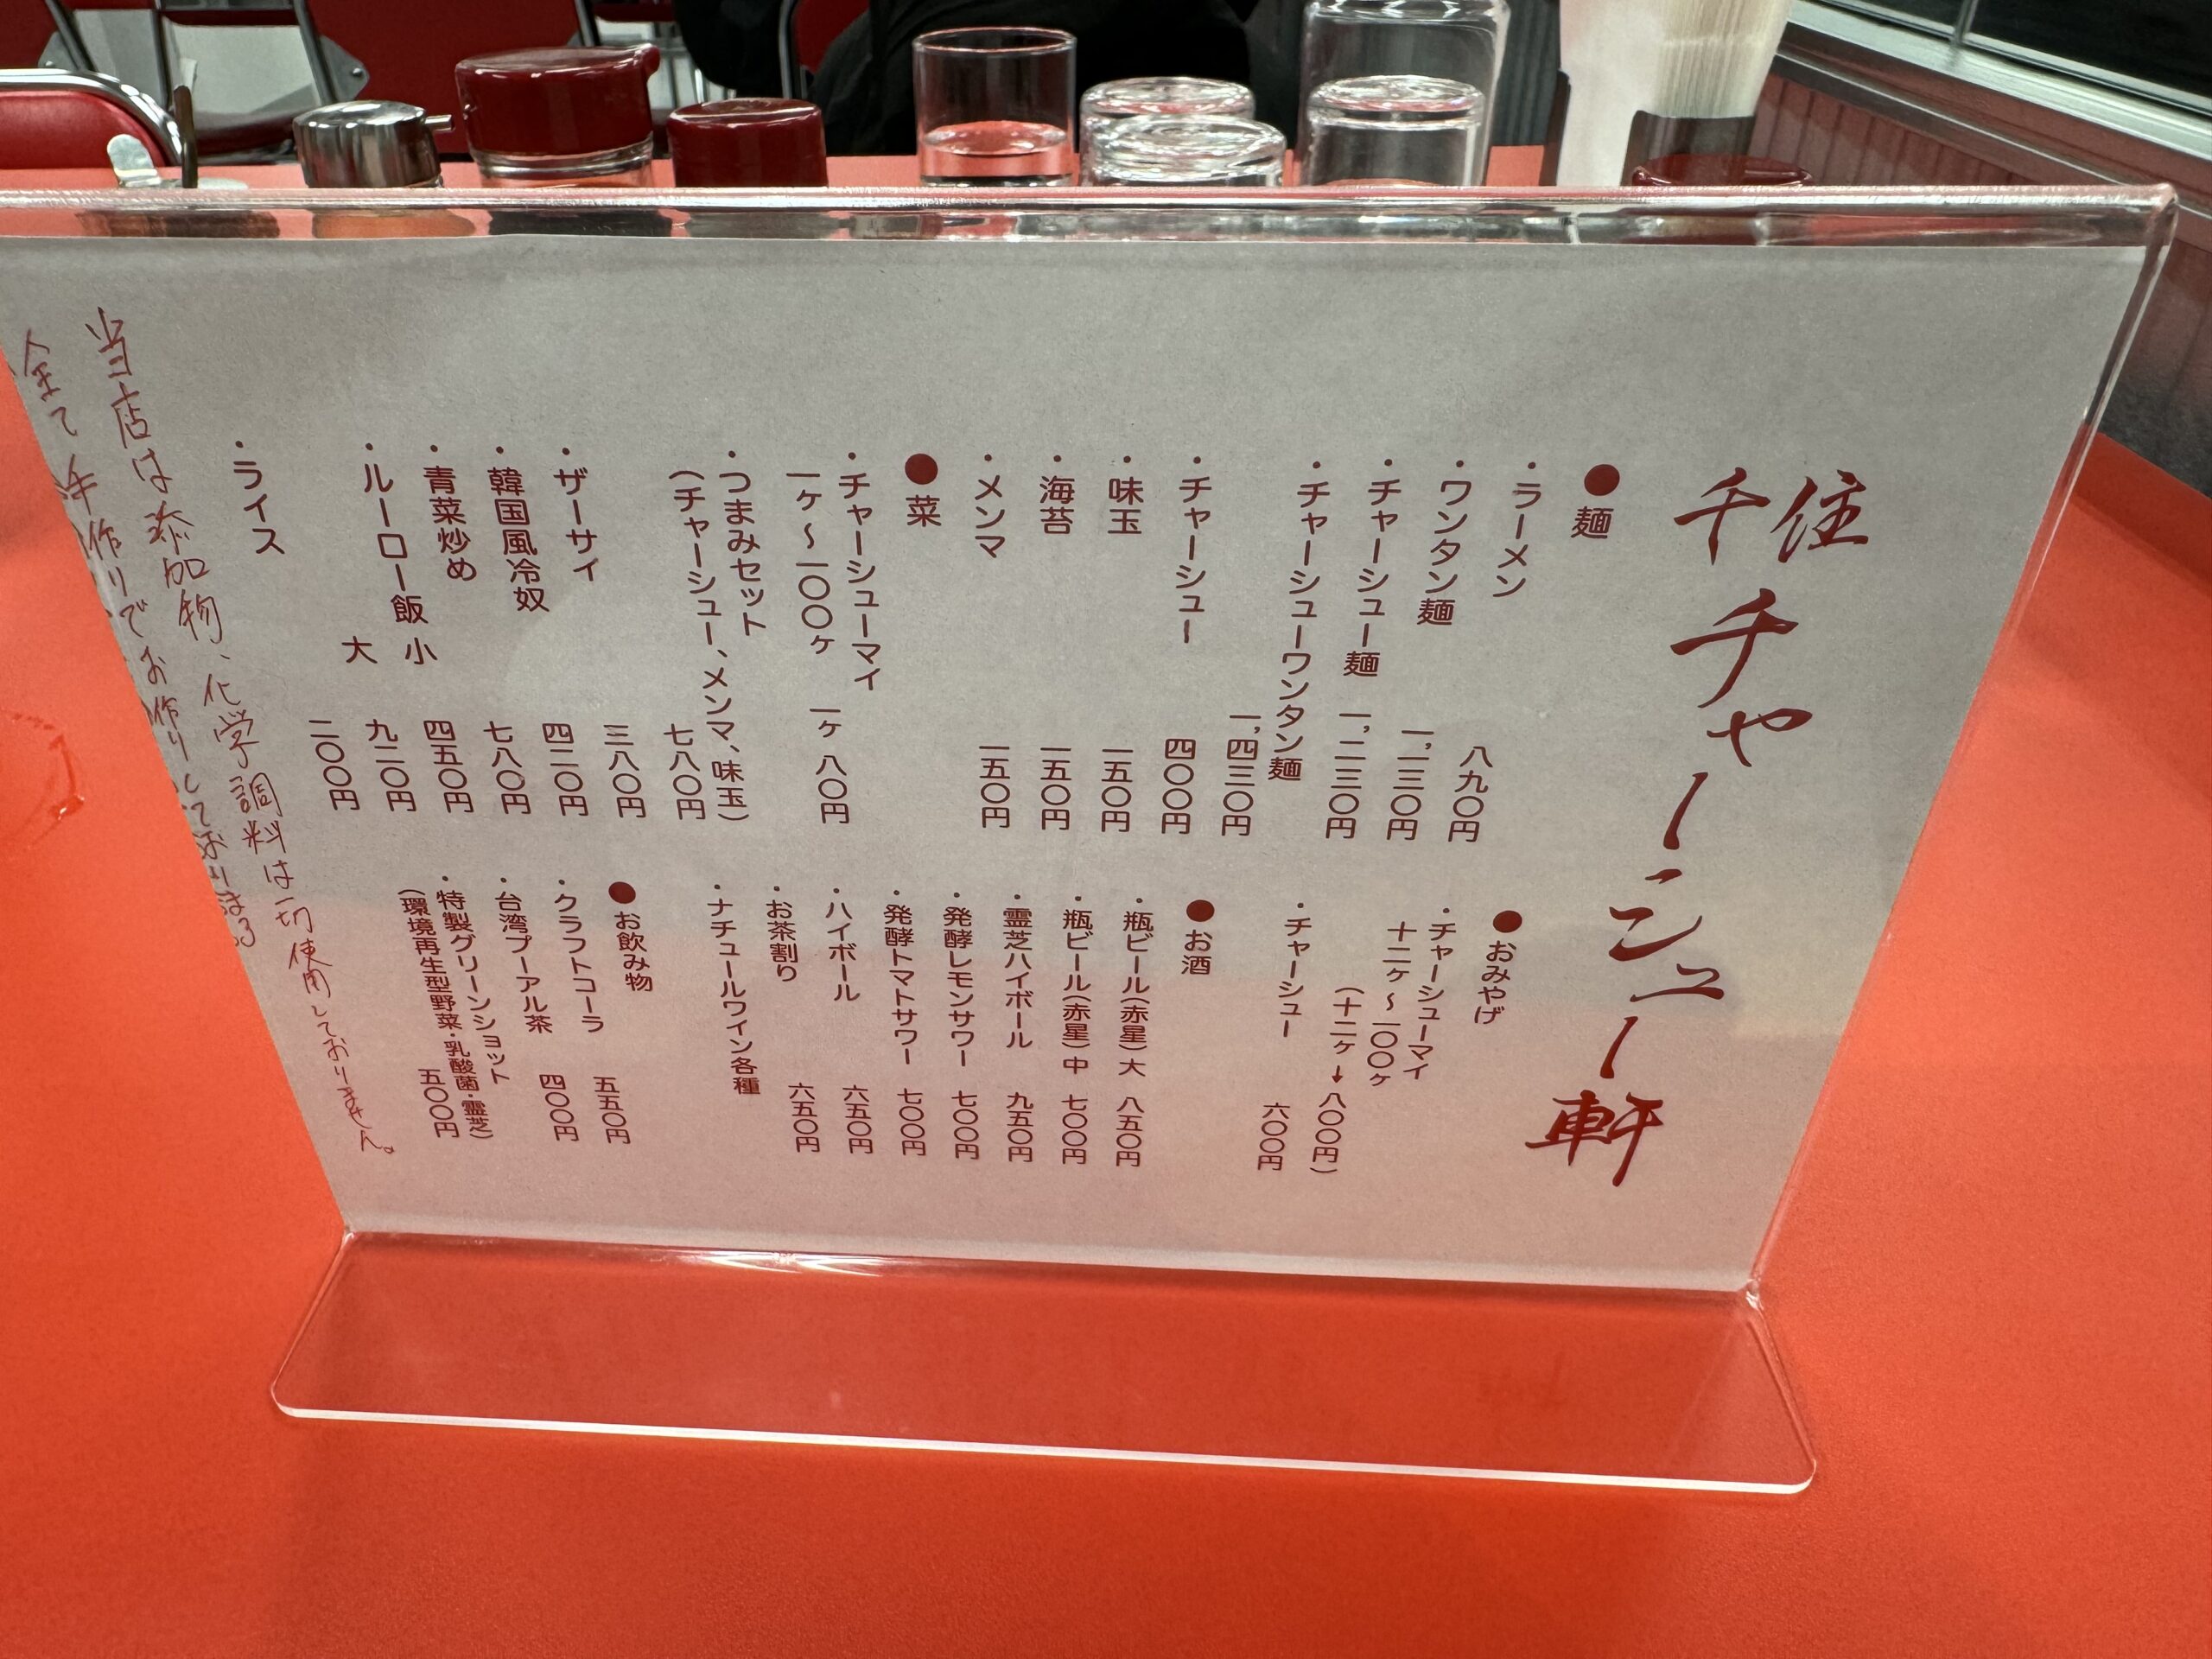 千住
チャーシュー軒
●麺
・ラーメン 八九〇円
・ワンタン麺 一,二三〇円
・チャーシュー麺 一,二三〇円
・チャーシューワンタン麺 一,四三〇円
・チャーシュー 四〇〇円
・味玉 一五〇円
・海苔 一五〇円
・メンマ 一五〇円
●菜
・チャーシューマイ
一ヶ〜一〇〇ヶ 一ヶ 八〇円
・つまみセット
(チャーシュー、メンマ、味玉) 七八〇円
・ザーサイ 三八〇円
・韓国風冷奴 四二〇円
・青菜炒め 七八〇円
・ルーロー飯 小 四五〇円
大 九二〇円
・ライス 二〇〇円
●おみやげ
・チャーシューマイ
十二ヶ〜一〇〇ヶ
(十二ヶ→八〇〇円)
・チャーシュー 六〇〇円
●お酒
・瓶ビール(赤星)大 八五〇円
・瓶ビール(赤星)中 七〇〇円
・霊芝ハイボール 九五〇円
・発酵レモンサワー 七〇〇円
・発酵トマトサワー 七〇〇円
・ハイボール 六五〇円
・お茶割り 六五〇円
・ナチュールワイン各種
●お飲み物
・クラフトコーラ 五五〇円
・台湾プーアル茶 四〇〇円
・特製グリーンショット
(環境再生型野菜・乳酸菌・霊芝) 五〇〇円
当店は添加物、化学調料は一切使用しておりません。
全て手作りでお作りしております